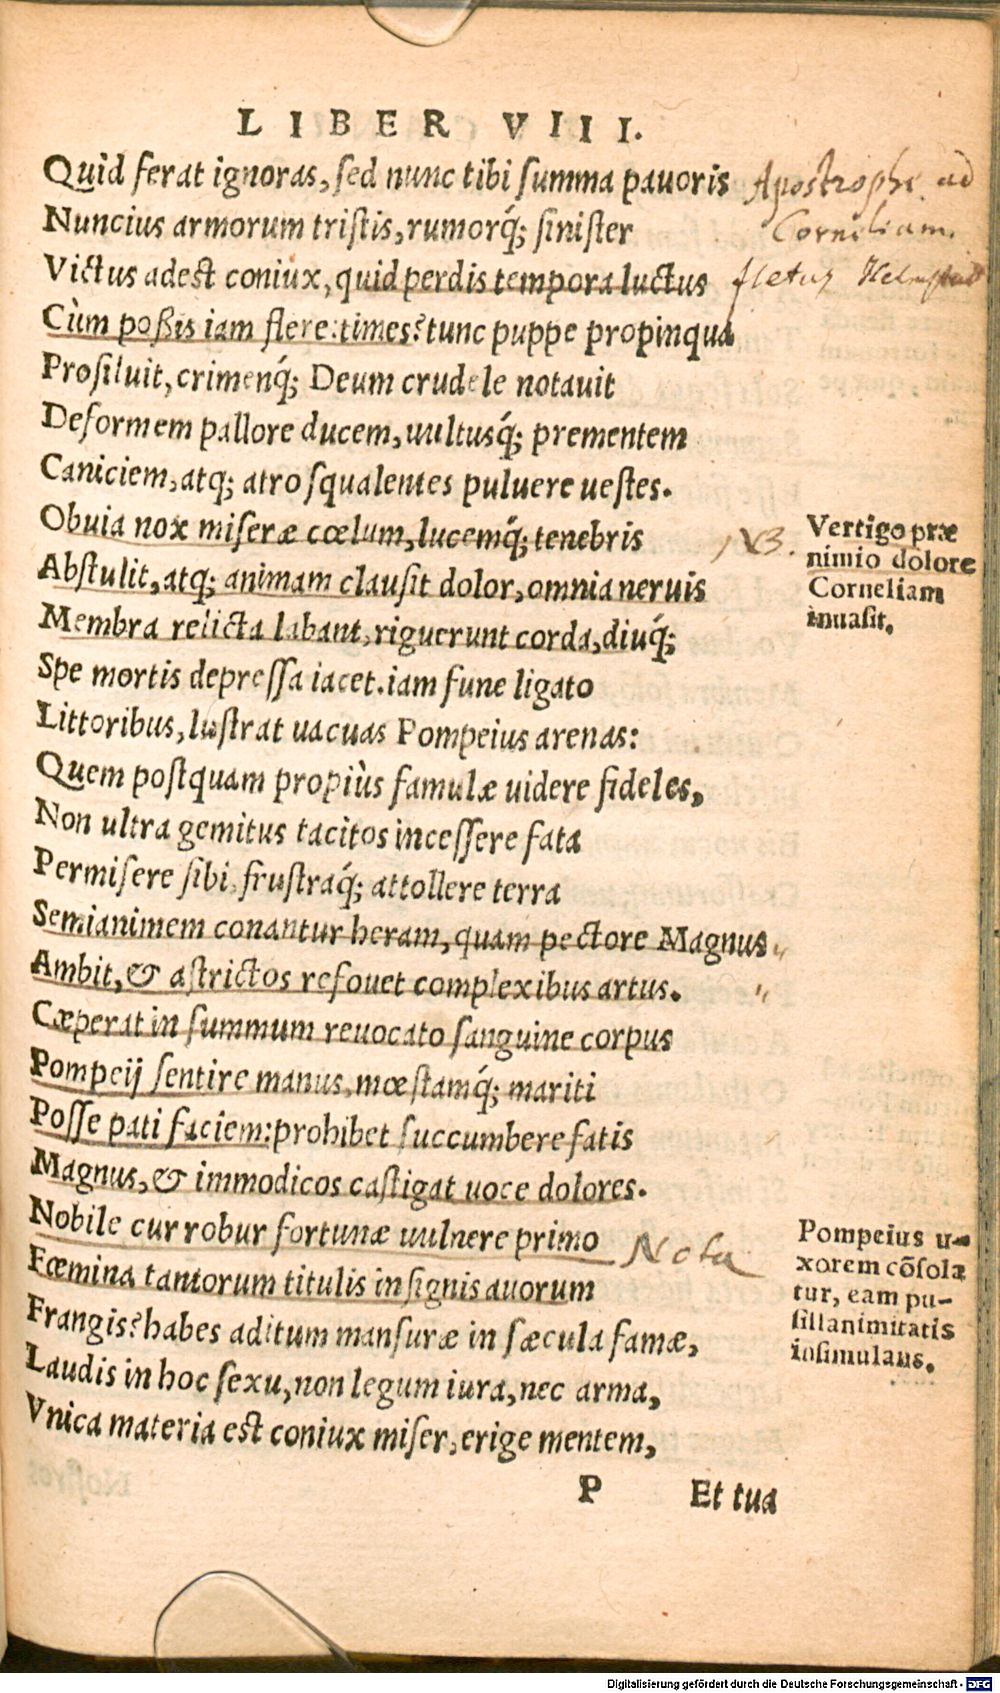 LIBER VIII.
Quid ferat ignoras, sed nunc tibi summa pauoris
Apostrophe ad
Corneliam.
Nuncius armorum tristis, rumorq́; sinister
Victus adest coniux, quid perdis tempora luctus
fletus
Cùm poßis iam flere: times? tunc puppe propinqua
Prosiluit, crimenq́; Deum crudele notauit
Deformem pallore ducem, uultusq́; prementem
Caniciem, atq; atro squalentes puluere uestes.
Obuia nox miseræ cœlum, lucemq́; tenebris
NB.
Vertigo præ
nimio dolore
Corneliam
inuasit.
Abstulit, atq; animam clausit dolor, omnia neruis
Membra relicta labant, riguerunt corda, diuq́;
Spe mortis depressa iacet. iam fune ligato
Littoribus, lustrat uacuas Pompeius arenas:
Quem postquam propiùs famulæ uidere fideles,
Non ultra gemitus tacitos incessere fata
Permisere sibi, frustraq́; attollere terra
Semianimem conantur heram, quam pectore Magnus
Ambit, & astrictos refouet complexibus artus.
Cœperat in summum reuocato sanguine corpus
Pompeij sentire manus, mœstamq́; mariti
Posse pati faciem: prohibet succumbere fatis
Magnus, & immodicos castigat uoce dolores.
Nobile cur robur fortunæ uulnere primo
Nota
Pompeius u-
xorem cõsola
tur, eam pu-
sillanimitatis
insimulans.
Fœmina tantorum titulis insignis auorum
Frangis? habes aditum mansuræ in sæcula famæ,
Laudis in hoc sexu, non legum iura, nec arma,
Vnica materia est coniux miser, erige mentem,
P
Et tua
Digitalisierung gefördert durch die Deutsche Forschungsgemeinschaft - DFG